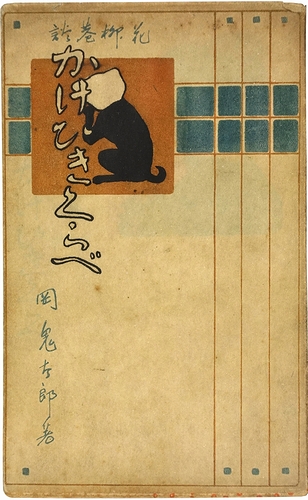 花柳巷談
かけひきくらべ
岡鬼太郎著